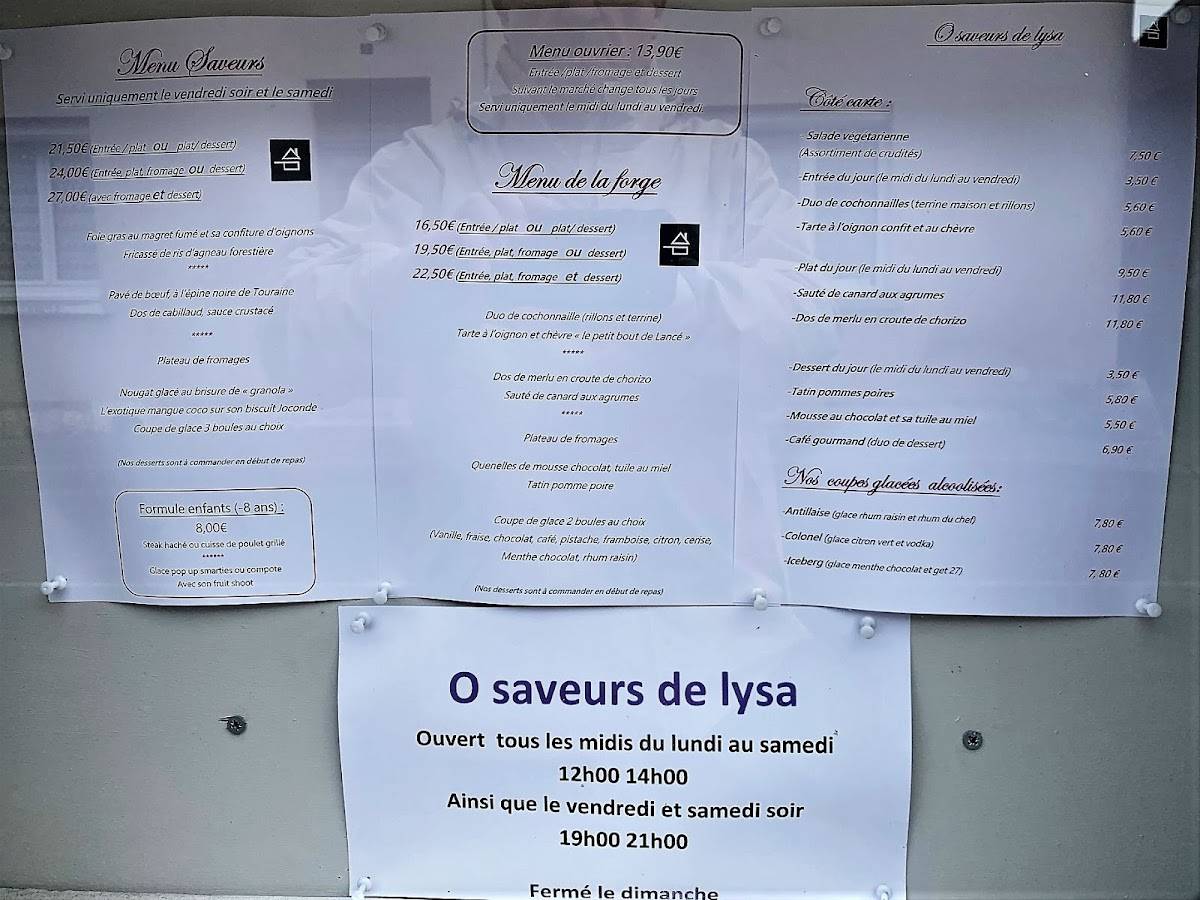 Menu Saveurs
Servi uniquement le vendredi soir et le samedi
21,50€ (Entrée / plat ou plat/ dessert)
24,00€ (Entrée, plat, fromage ou dessert)
27,00€ (avec fromage et dessert)
Foie gras au magret fumé et sa confiture d'oignons
Fricassé de ris d'agneau forestière
*****
Pavé de bœuf, à l'épine noire de Touraine
Dos de cabillaud, sauce crustacé
*****
Plateau de fromages
Nougat glacé au brisure de « granola »
L'exotique mangue coco sur son biscuit Joconde
Coupe de glace 3 boules au choix
(Nos desserts sont à commander en début de repas)
Formule enfants (-8 ans) :
8,00€
Steak haché ou cuisse de poulet grillé
******
Glace pop up smarties ou compote
Avec son fruit shoot
Menu ouvrier : 13,90€
Entrée /plat /fromage et dessert
Suivant le marché change tous les jours
Servi uniquement le midi du lundi au vendredi.
Menu de la forge
16,50€ (Entrée / plat ou plat/ dessert)
19,50€ (Entrée, plat, fromage ou dessert)
22,50€ (Entrée, plat, fromage et dessert)
Duo de cochonnaille (rillons et terrine)
Tarte à l'oignon et chèvre « le petit bout de Lancé »
*****
Dos de merlu en croute de chorizo
Sauté de canard aux agrumes
*****
Plateau de fromages
Quenelles de mousse chocolat, tuile au miel
Tatin pomme poire
Coupe de glace 2 boules au choix
(Vanille, fraise, chocolat, café, pistache, framboise, citron, cerise,
Menthe chocolat, rhum raisin)
(Nos desserts sont à commander en début de repas)
O saveurs de lysa
Côté carte :
- Salade végétarienne
(Assortiment de crudités) 7,50 €
-Entrée du jour (le midi du lundi au vendredi) 3,50 €
-Duo de cochonnailles (terrine maison et rillons) 5,60 €
-Tarte à l'oignon confit et au chèvre 5,60 €
-Plat du jour (le midi du lundi au vendredi) 9,50 €
-Sauté de canard aux agrumes 11,80 €
-Dos de merlu en croute de chorizo 11,80 €
-Dessert du jour (le midi du lundi au vendredi) 3,50 €
-Tatin pommes poires 5,80 €
-Mousse au chocolat et sa tuile au miel 5,50 €
-Café gourmand (duo de dessert) 6,90 €
Nos coupes glacées alcoolisées:
-Antillaise (glace rhum raisin et rhum du chef) 7,80 €
-Colonel (glace citron vert et vodka) 7,80 €
-Iceberg (glace menthe chocolat et get 27) 7, 80 €
O saveurs de lysa
Ouvert tous les midis du lundi au samedi
12h00 14h00
Ainsi que le vendredi et samedi soir
19h00 21h00
Fermé le dimanche